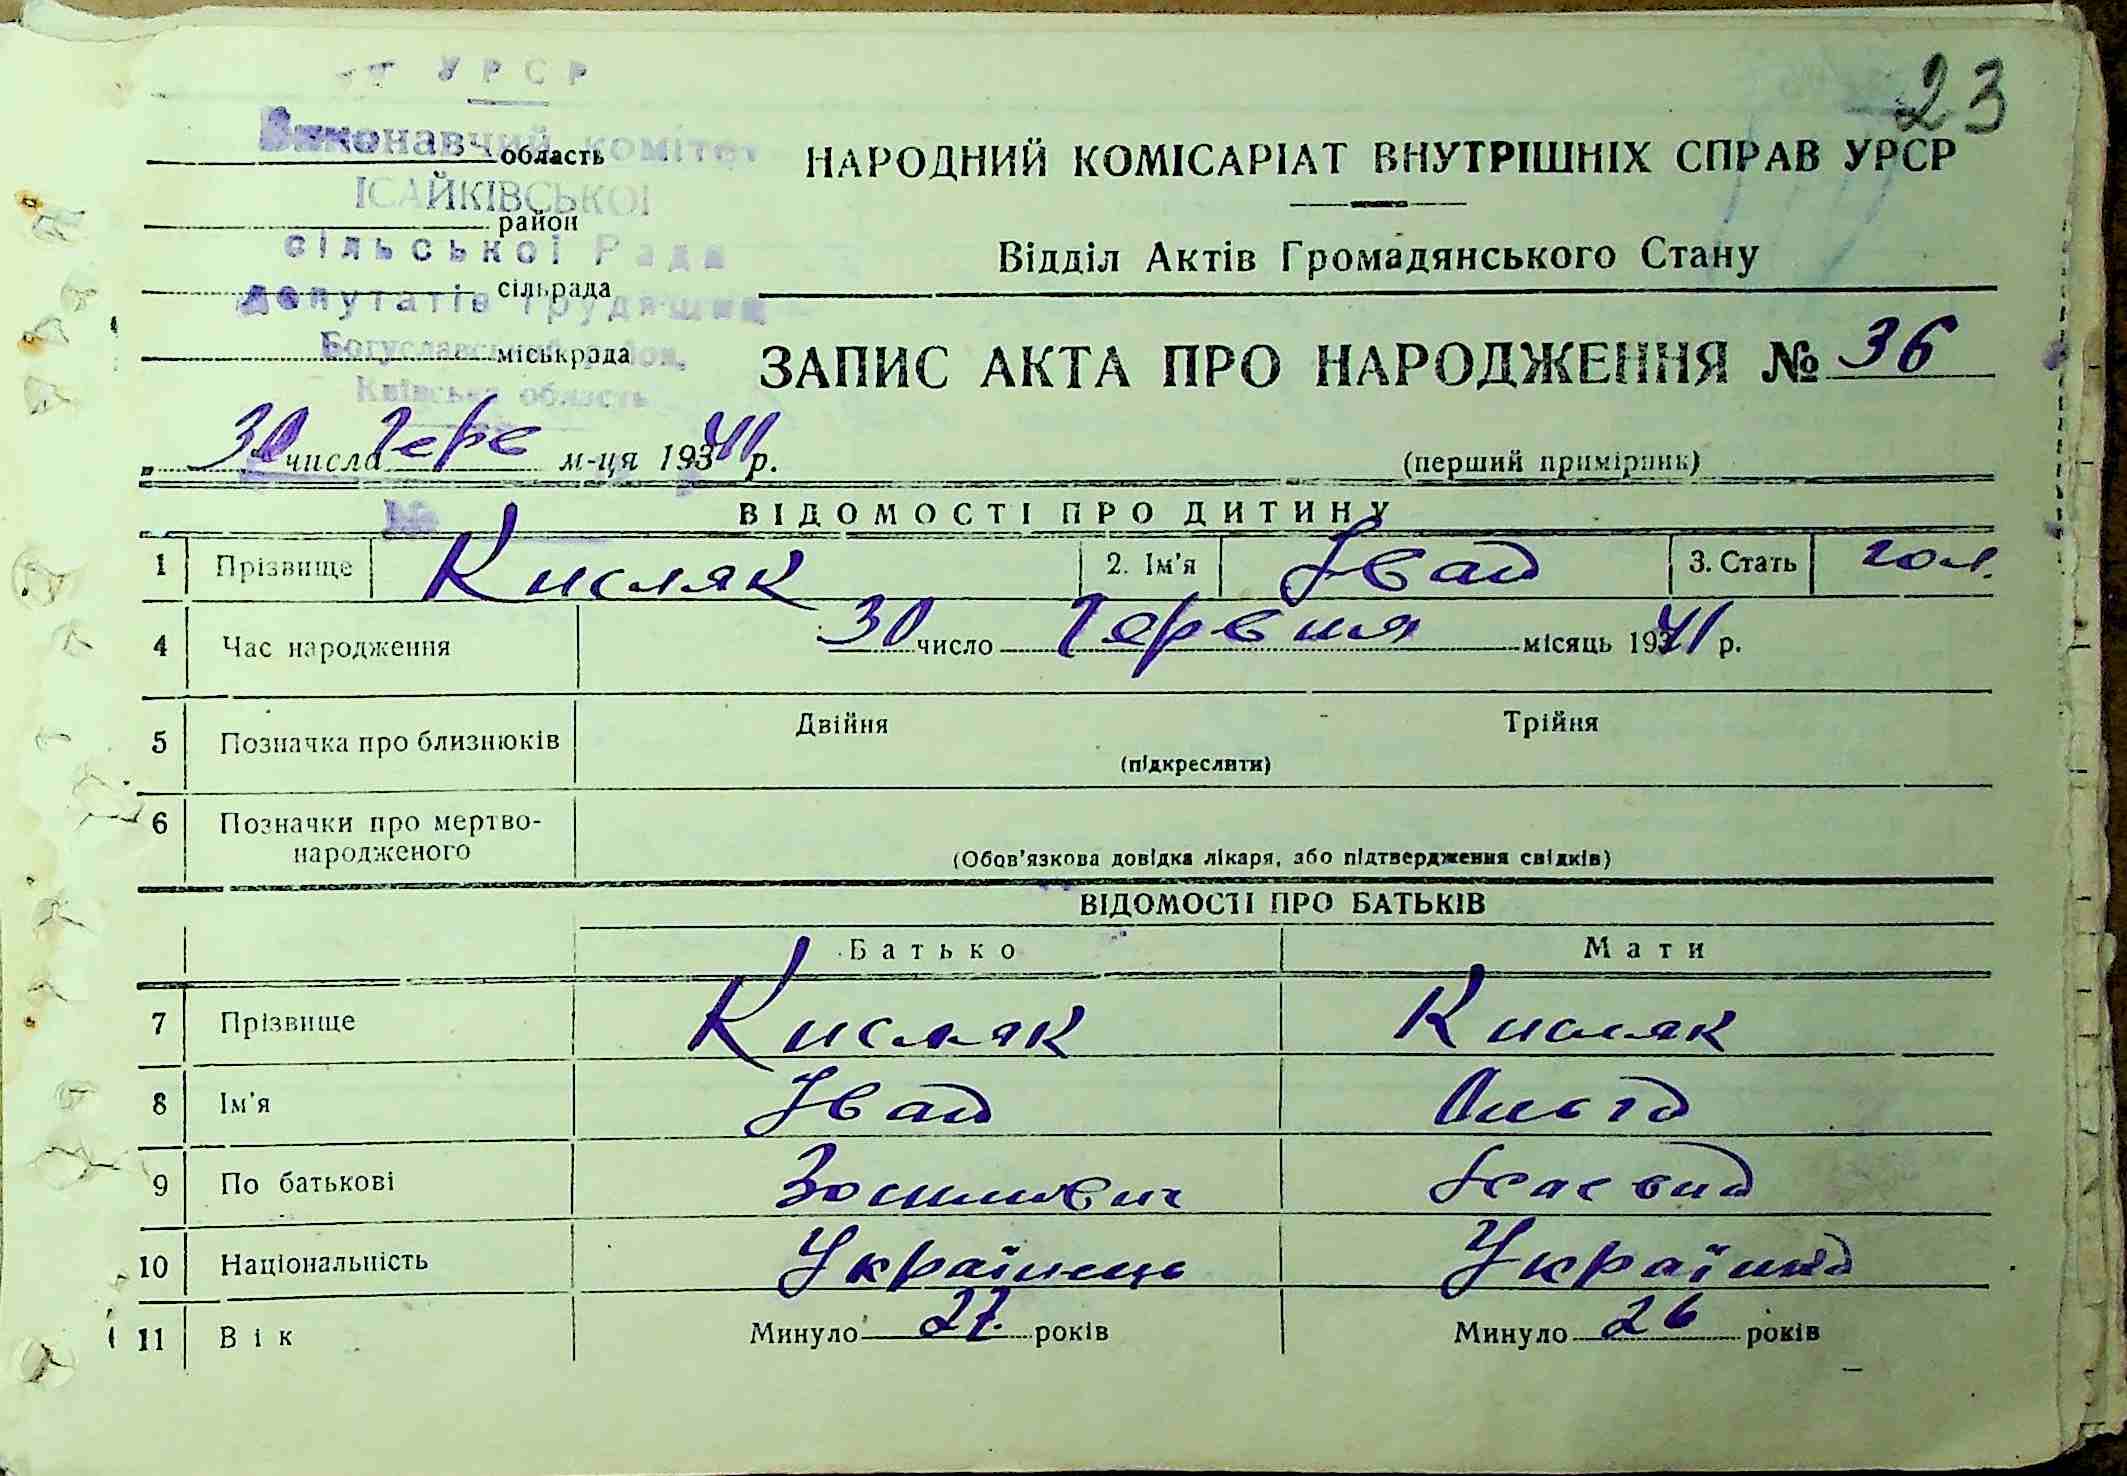 УРСР
23
Виконавчий комітет
область
НАРОДНИЙ КОМІСАРІАТ ВНУТРІШНІХ СПРАВ УРСР
ІСАЙКІВСЬКОЇ
район
сільської Рада
Відділ Актів Громадянського Стану
сільрада
депутатів трудящих
Богуславський район,
міськрада
ЗАПИС АКТА ПРО НАРОДЖЕННЯ № 36
Київська область
30 числа Черв м-ця 1941 р.
(перший примірник)
№
ВІДОМОСТІ ПРО ДИТИНУ
1 Прізвище Кисляк 2. Ім'я Іван 3. Стать чол.
4 Час народження 30 число Червня місяць 1941 р.
5 Позначка про близнюків Двійня Трійня
(підкреслити)
6 Позначки про мертво-
народженого
(Обов'язкова довідка лікаря, або підтвердження свідків)
ВІДОМОСТІ ПРО БАТЬКІВ
Батько Мати
7 Прізвище Кисляк Кисляк
8 Ім'я Іван Ольга
9 По батькові
10 Національність Українець Україн
11 Вік Минуло 27. років Минуло 26 років